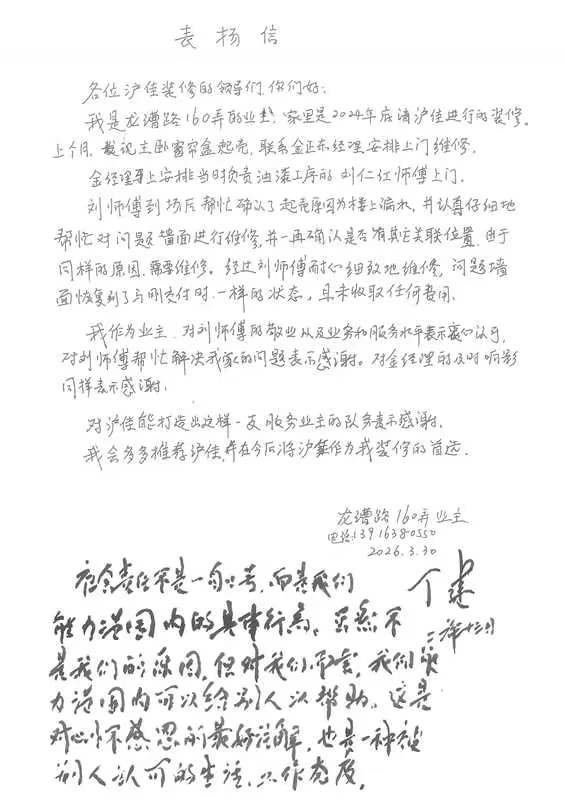 表扬信
各位沪佳装修的领导们，你们好：
我是龙漕路160弄的业主，家里是2024年底请沪佳进行的装修。
上个月，发现主卧窗帘盒起壳，联系金正东经理安排上门维修。
金经理马上安排当时负责油漆工序的刘仁红师傅上门。
刘师傅到场后帮忙确认了起壳原因为楼上漏水，并认真仔细地
帮忙对问题墙面进行维修，并一再确认是否有其它关联位置，由于
同样的原因，需要维修。经过刘师傅耐心细致地维修，问题墙
面恢复到了与刚交付时一样的状态，且未收取任何费用。
我作为业主，对刘师傅的敬业以及业务和服务水平表示衷心认可，
对刘师傅帮忙解决我家的问题表示感谢。对金经理的及时响影
同样表示感谢。
对沪佳能打造出这样一支服务业主的队务表示感谢。
我会多多推荐沪佳，并在今后将沪佳作为我装修的首选。
龙漕路160弄业主
电话：13916380550
2026.3.30
社会责任不是一句口号，而是我们
能力范围内的具体行为。虽然不
是我们的原因，但对我们
力范围内可以给别人以帮助。这是
对心怀感恩的最好注解，也是一种被
别人认可的生活、工作态度。